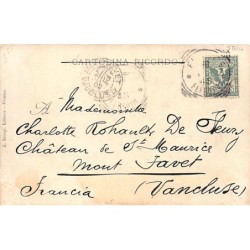 CARTOLINA RICORDO
À Mademoiselle
Charlotte Rohault De Fleury
Château de St Maurice
Mont Favet
Francia (Vaucluse)